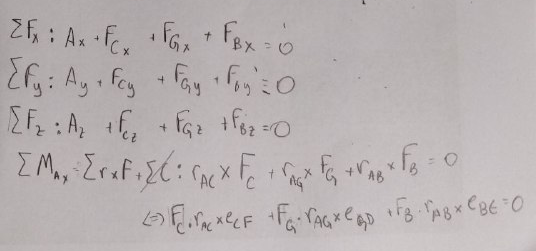 ΣFx : Ax + FCx + FGx + FBx = 0
ΣFy : Ay + FCy + FGy + Fby = 0
ΣFz : Az + FCz + FGz + FBz = 0
ΣMAx = Σr×F + ΣC : rAC × FC + rAG × FG + rAB × FB = 0
(=) FC · rAC × eCF + FG · rAG × eGD + FB · rAB × eBE = 0